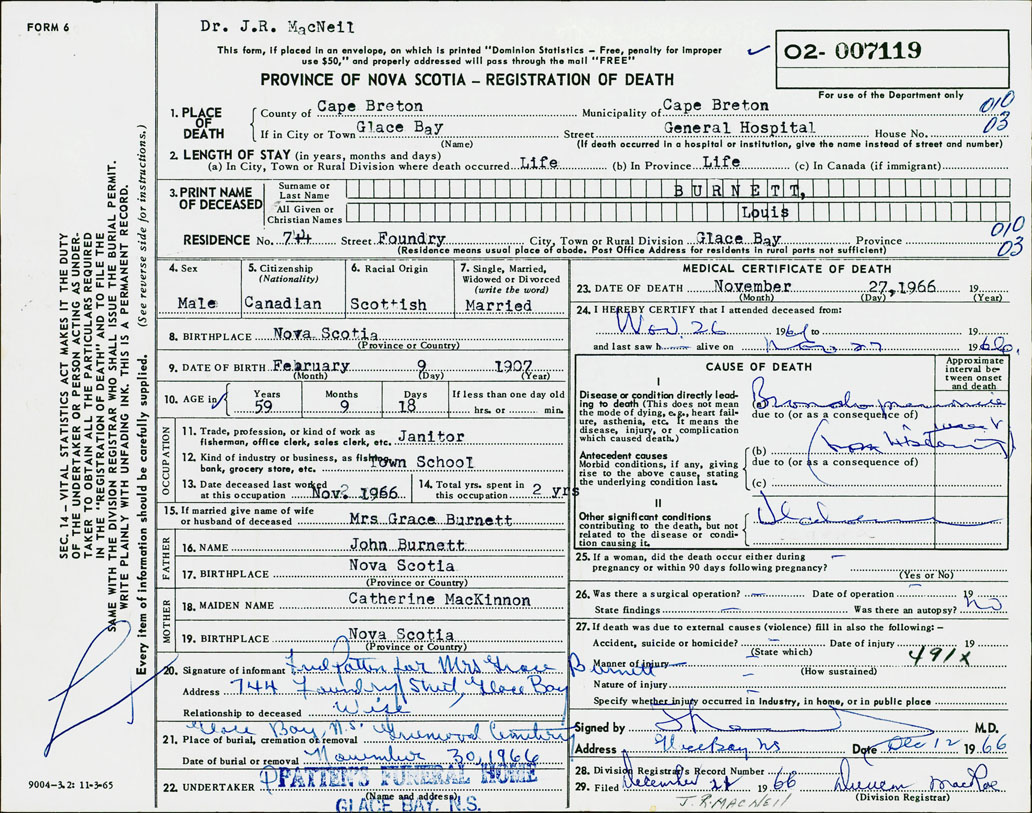 FORM 6
Dr. J.R. MacNeil
This form, if placed in an envelope, on which is printed "Dominion Statistics – Free, penalty for improper
use $50," and properly addressed will pass through the mail "FREE"
PROVINCE OF NOVA SCOTIA – REGISTRATION OF DEATH
02- 007119
For use of the Department only
1. PLACE OF DEATH
County of Cape Breton Municipality of Cape Breton 010
If in City or Town Glace Bay Street General Hospital House No. 03
(Name) (If death occurred in a hospital or institution, give the name instead of street and number)
2. LENGTH OF STAY (in years, months and days)
(a) In City, Town or Rural Division where death occurred Life (b) In Province Life (c) In Canada (if immigrant)
3. PRINT NAME OF DECEASED
Surname or Last Name BURNETT,
All Given or Christian Names Louis
RESIDENCE No. 744 Street Foundry City, Town or Rural Division Glace Bay Province 010
(Residence means usual place of abode. Post Office Address for residents in rural parts not sufficient) 03
4. Sex Male
5. Citizenship (Nationality) Canadian
6. Racial Origin Scottish
7. Single, Married, Widowed or Divorced (write the word) Married
8. BIRTHPLACE Nova Scotia
(Province or Country)
9. DATE OF BIRTH February 9 1907
(Month) (Day) (Year)
10. AGE in Years 59 Months 9 Days 18 If less than one day old hrs. or min.
OCCUPATION
11. Trade, profession, or kind of work as fisherman, office clerk, sales clerk, etc. Janitor
12. Kind of industry or business, as fishing, bank, grocery store, etc. Town School
13. Date deceased last worked at this occupation Nov. 2 1966
14. Total yrs. spent in this occupation 2 yrs
15. If married give name of wife or husband of deceased Mrs Grace Burnett
FATHER
16. NAME John Burnett
17. BIRTHPLACE Nova Scotia
(Province or Country)
MOTHER
18. MAIDEN NAME Catherine MacKinnon
19. BIRTHPLACE Nova Scotia
(Province or Country)
20. Signature of informant Fred Patten for Mrs Grace Burnett
Address 744 Foundry Street, Glace Bay
Relationship to deceased Wife
Glace Bay, N.S. Greenwood Cemetery
21. Place of burial, cremation or removal
Date of burial or removal November 30, 1966
22. UNDERTAKER PATTEN'S FUNERAL HOME
(Name and address)
GLACE BAY, N.S.
9004-3.2: 11-3-65
SEC. 14 – VITAL STATISTICS ACT MAKES IT THE DUTY
OF THE UNDERTAKER OR PERSON ACTING AS UNDER-
TAKER TO OBTAIN ALL THE PARTICULARS REQUIRED
IN THE "REGISTRATION OF DEATH" AND TO FILE THE
SAME WITH THE DIVISION REGISTRAR WHO SHALL ISSUE THE BURIAL PERMIT.
WRITE PLAINLY WITH UNFADING INK. THIS IS A PERMANENT RECORD.
Every item of information should be carefully supplied. (See reverse side for instructions.)
MEDICAL CERTIFICATE OF DEATH
23. DATE OF DEATH November 27, 1966 19
(Month) (Day) (Year)
24. I HEREBY CERTIFY that I attended deceased from:
Nov. 26 1966 to 19
and last saw h alive on Nov 27 1966.
CAUSE OF DEATH
Approximate interval between onset and death
I
Disease or condition directly leading to death (This does not mean the mode of dying, e.g., heart failure, asthenia, etc. It means the disease, injury, or complication which caused death.)
(a) Bronchopneumonia
due to (or as a consequence of)
Antecedent causes
Morbid conditions, if any, giving rise to the above cause, stating the underlying condition last.
(b)
due to (or as a consequence of)
(c)
II
Other significant conditions contributing to the death, but not related to the disease or condition causing it.
25. If a woman, did the death occur either during
pregnancy or within 90 days following pregnancy? –
(Yes or No)
26. Was there a surgical operation? – Date of operation – 19
State findings – Was there an autopsy? No
27. If death was due to external causes (violence) fill in also the following:-
Accident, suicide or homicide? – Date of injury – 19
(State which) 491X
Manner of injury –
(How sustained)
Nature of injury –
Specify whether injury occurred in industry, in home, or in public place
Signed by M.D.
Address Glace Bay NS Date Dec 12 1966
28. Division Registrar's Record Number
29. Filed December 22 1966 Duncan MacRae
(Division Registrar)
J.R. MACNEIL